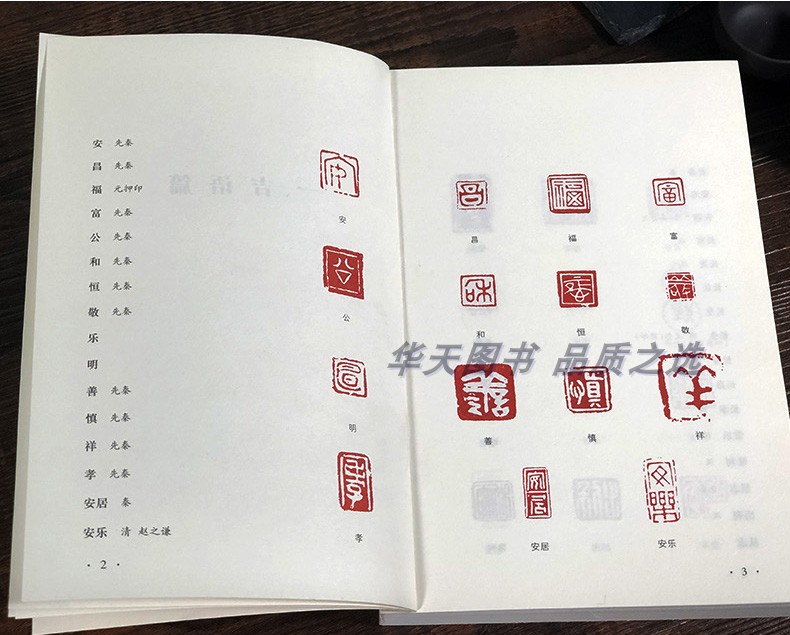 安 先秦
昌 先秦
福 元押印
富 先秦
公 先秦
和 先秦
恒 先秦
敬 先秦
乐
明
善 先秦
慎 先秦
祥 先秦
孝 先秦
安居 秦
安乐 清 赵之谦
安
公
明
孝
·2·
昌 福 富
和 恒 敬
华天图书 品质之选
善 慎 祥
安居 安乐
·3·